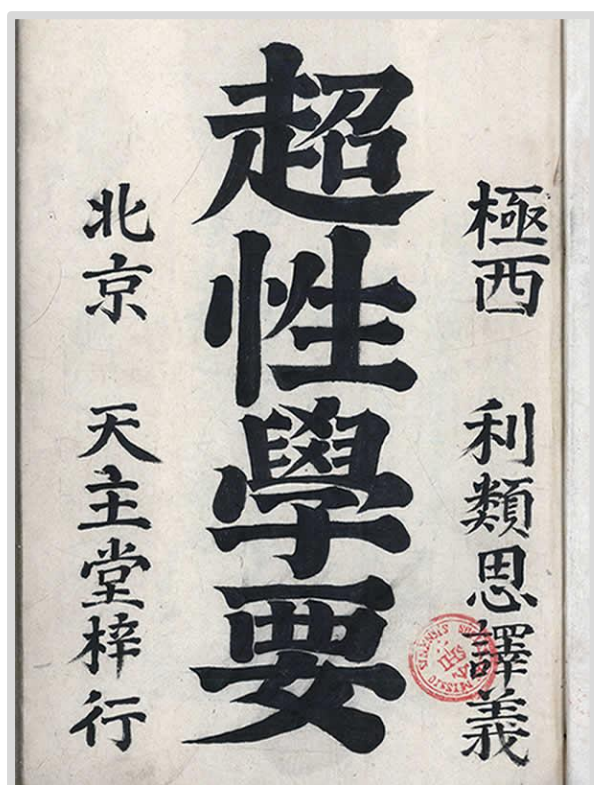 極西 利類思譯義
超性學要
北京 天主堂梓行